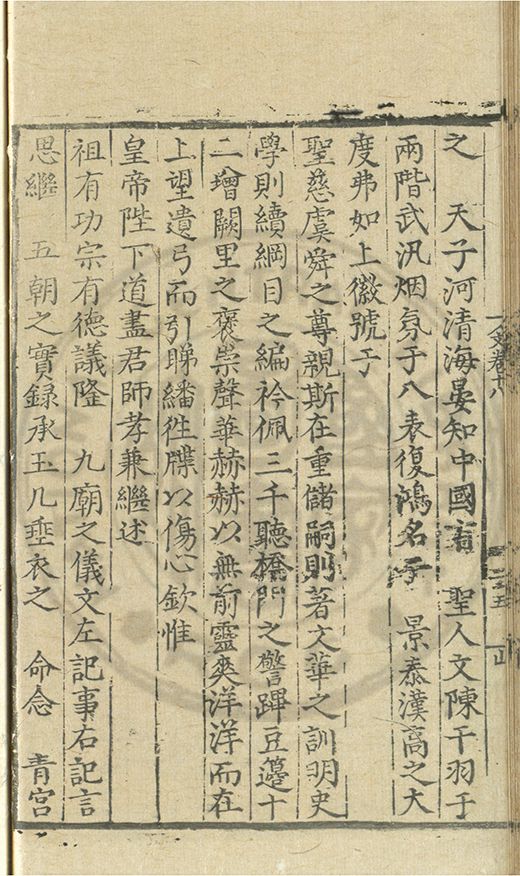 之　天子河清海晏知中國有　聖人文陳干羽于
兩階武汎烟氛于八表復鴻名于　景泰漢高之大
度弗如上徽號于
聖慈虞舜之尊親斯在重儲嗣則著文華之訓明史
學則續綱目之編衿佩三千聽橋門之警蹕豆籩十
二增闕里之褒崇聲華赫赫以無前靈爽洋洋而在
上望遺弓而引睇繙徃牒以傷心欽惟
皇帝陛下道盡君師孝兼繼述
祖有功宗有德議隆　九廟之儀文左記事右記言
思繼　五朝之實録承玉几埀衣之　命念　青宮